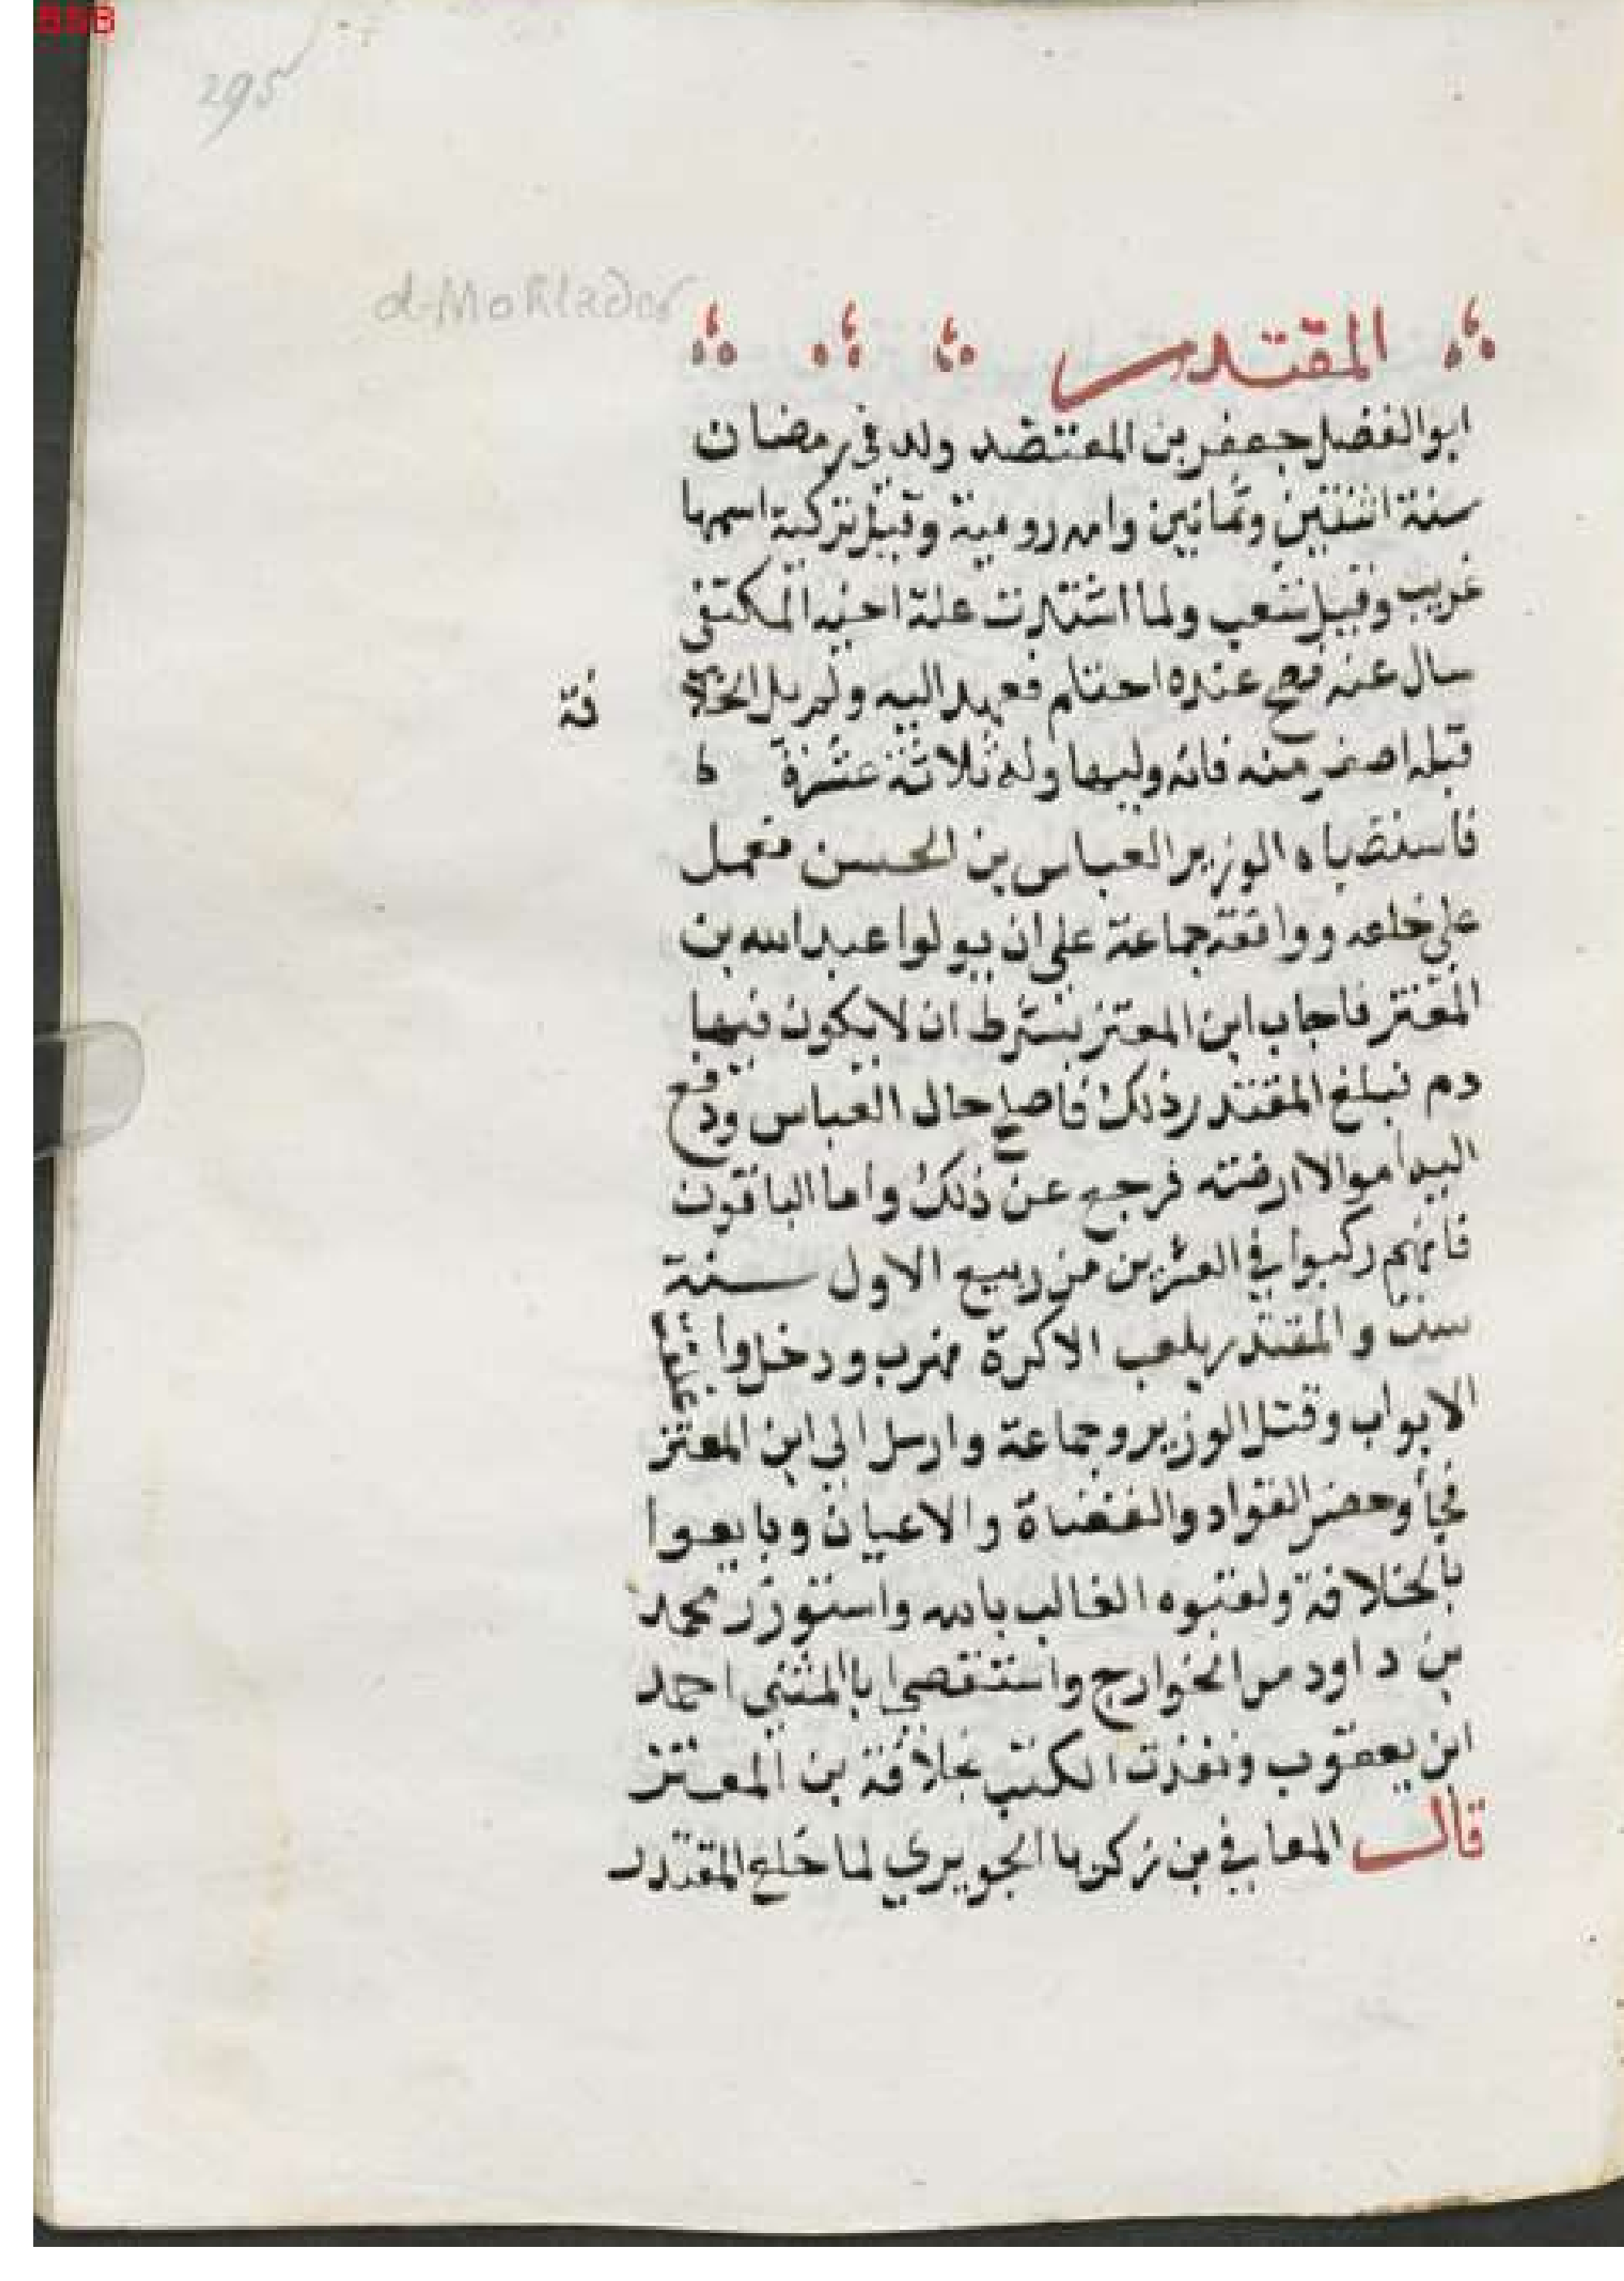 295
al-Moktader
المقتدر
ابو الفضل جعفر بن المعتضد ولد في رمضان
سنة اثنتين وثمانين وامه رومية وقيل تركية اسمها
غريب وقيل شعب ولما اشتدت علة اخيه المكتفى
سال عنه فصح عنده احتلم فعهد اليه ولم يل الخلا
فة
قبله اصغر منه فانه وليها وله ثلاثة عشرة
فاستصباه الوزير العباس بن الحسن فعمل
على خلعه ووافقة جماعة على ان يولوا عبد الله بن
المعتز فاجاب ابن المعتز بشرط ان لا يكون فيها
دم فبلغ المقتدر ذلك فاصلح حال العباس ودفع
اليه اموالا ارضته فرجع عن ذلك واما الباقون
فانهم ركبوا في العشرين من ربيع الاول سنة
ست والمقتدر يلعب الاكرة فهرب ودخلوا
الابواب وقتل الوزير وجماعة وارسل الى ابن المعتز
فجأ وحضر القواد والقضاة والاعيان وبايعوا
بالخلافة ولقبوه الغالب بالله واستوزر محمد
بن داود من الخوارج واستقصى ابا المثنى احمد
ابن يعقوب ونفذت الكتب بخلافة بن المعتز
قال المعافي بن زكريا الجويري لما خلع المقتدر